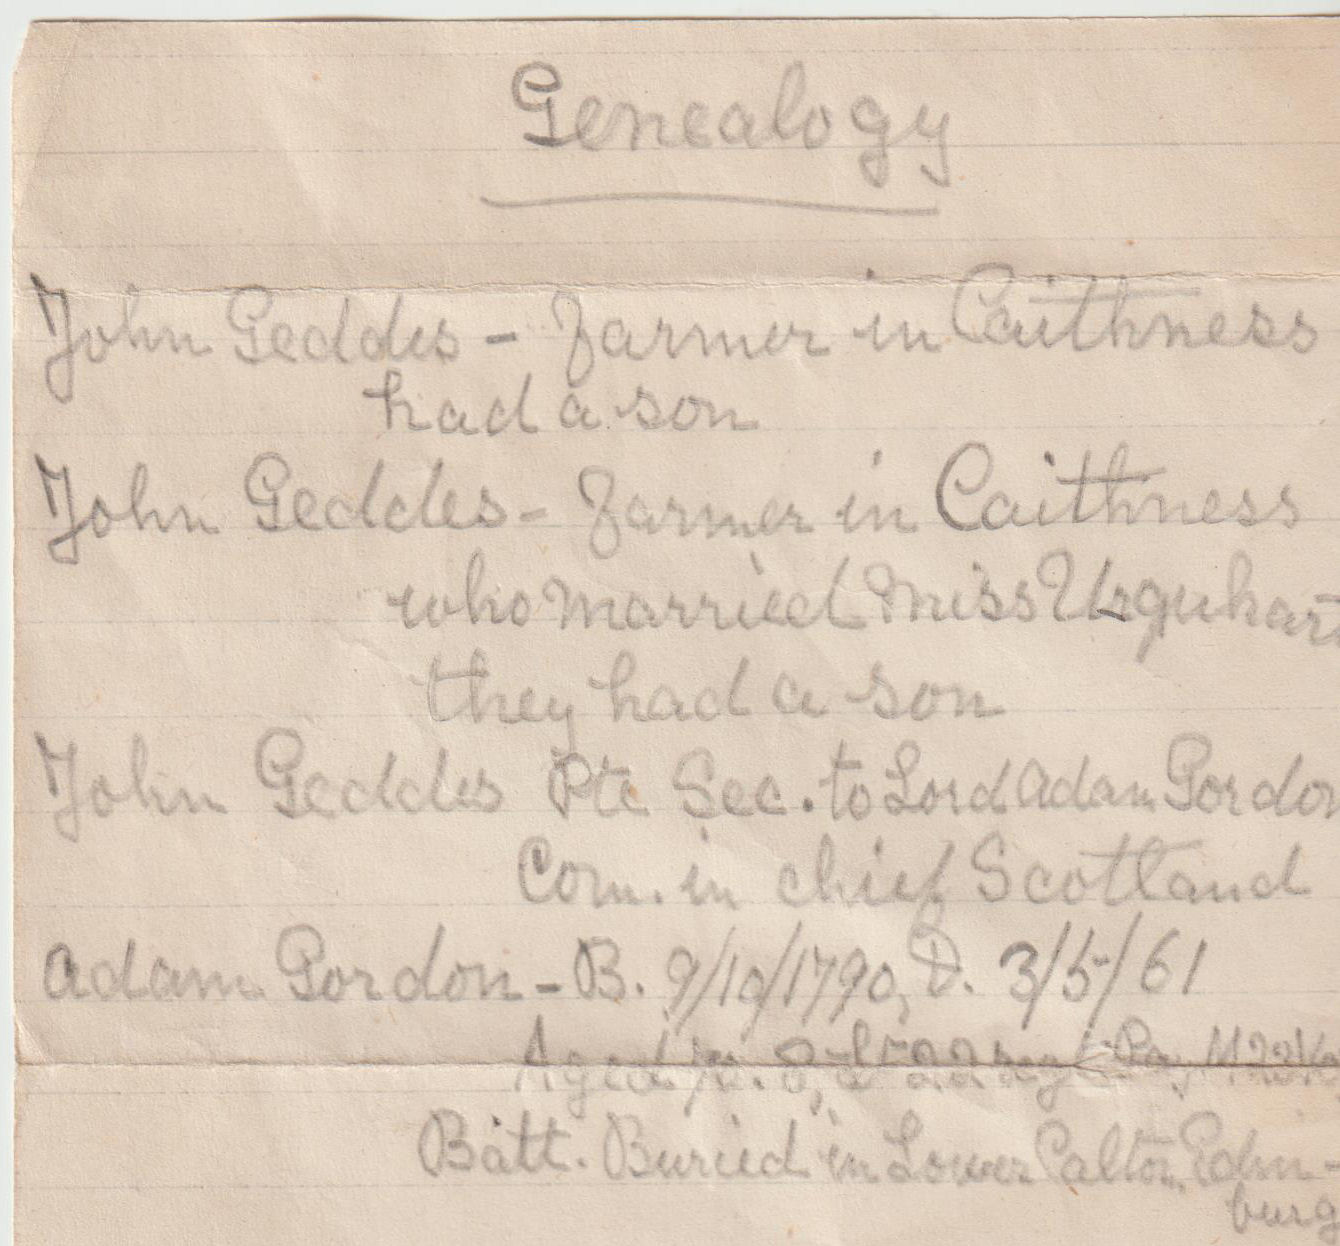 Genealogy
John Geddes - Farmer in Caithness
had a son
John Geddes - Farmer in Caithness
who married Miss Urquhart
they had a son
John Geddes Pte Sec. to Lord Adam Gordon
Com. in chief Scotland
Adam Gordon - B. 9/10/1790, D. 3/5/61
Aged
Batt. Buried in Lower Calton, Edin-
burg